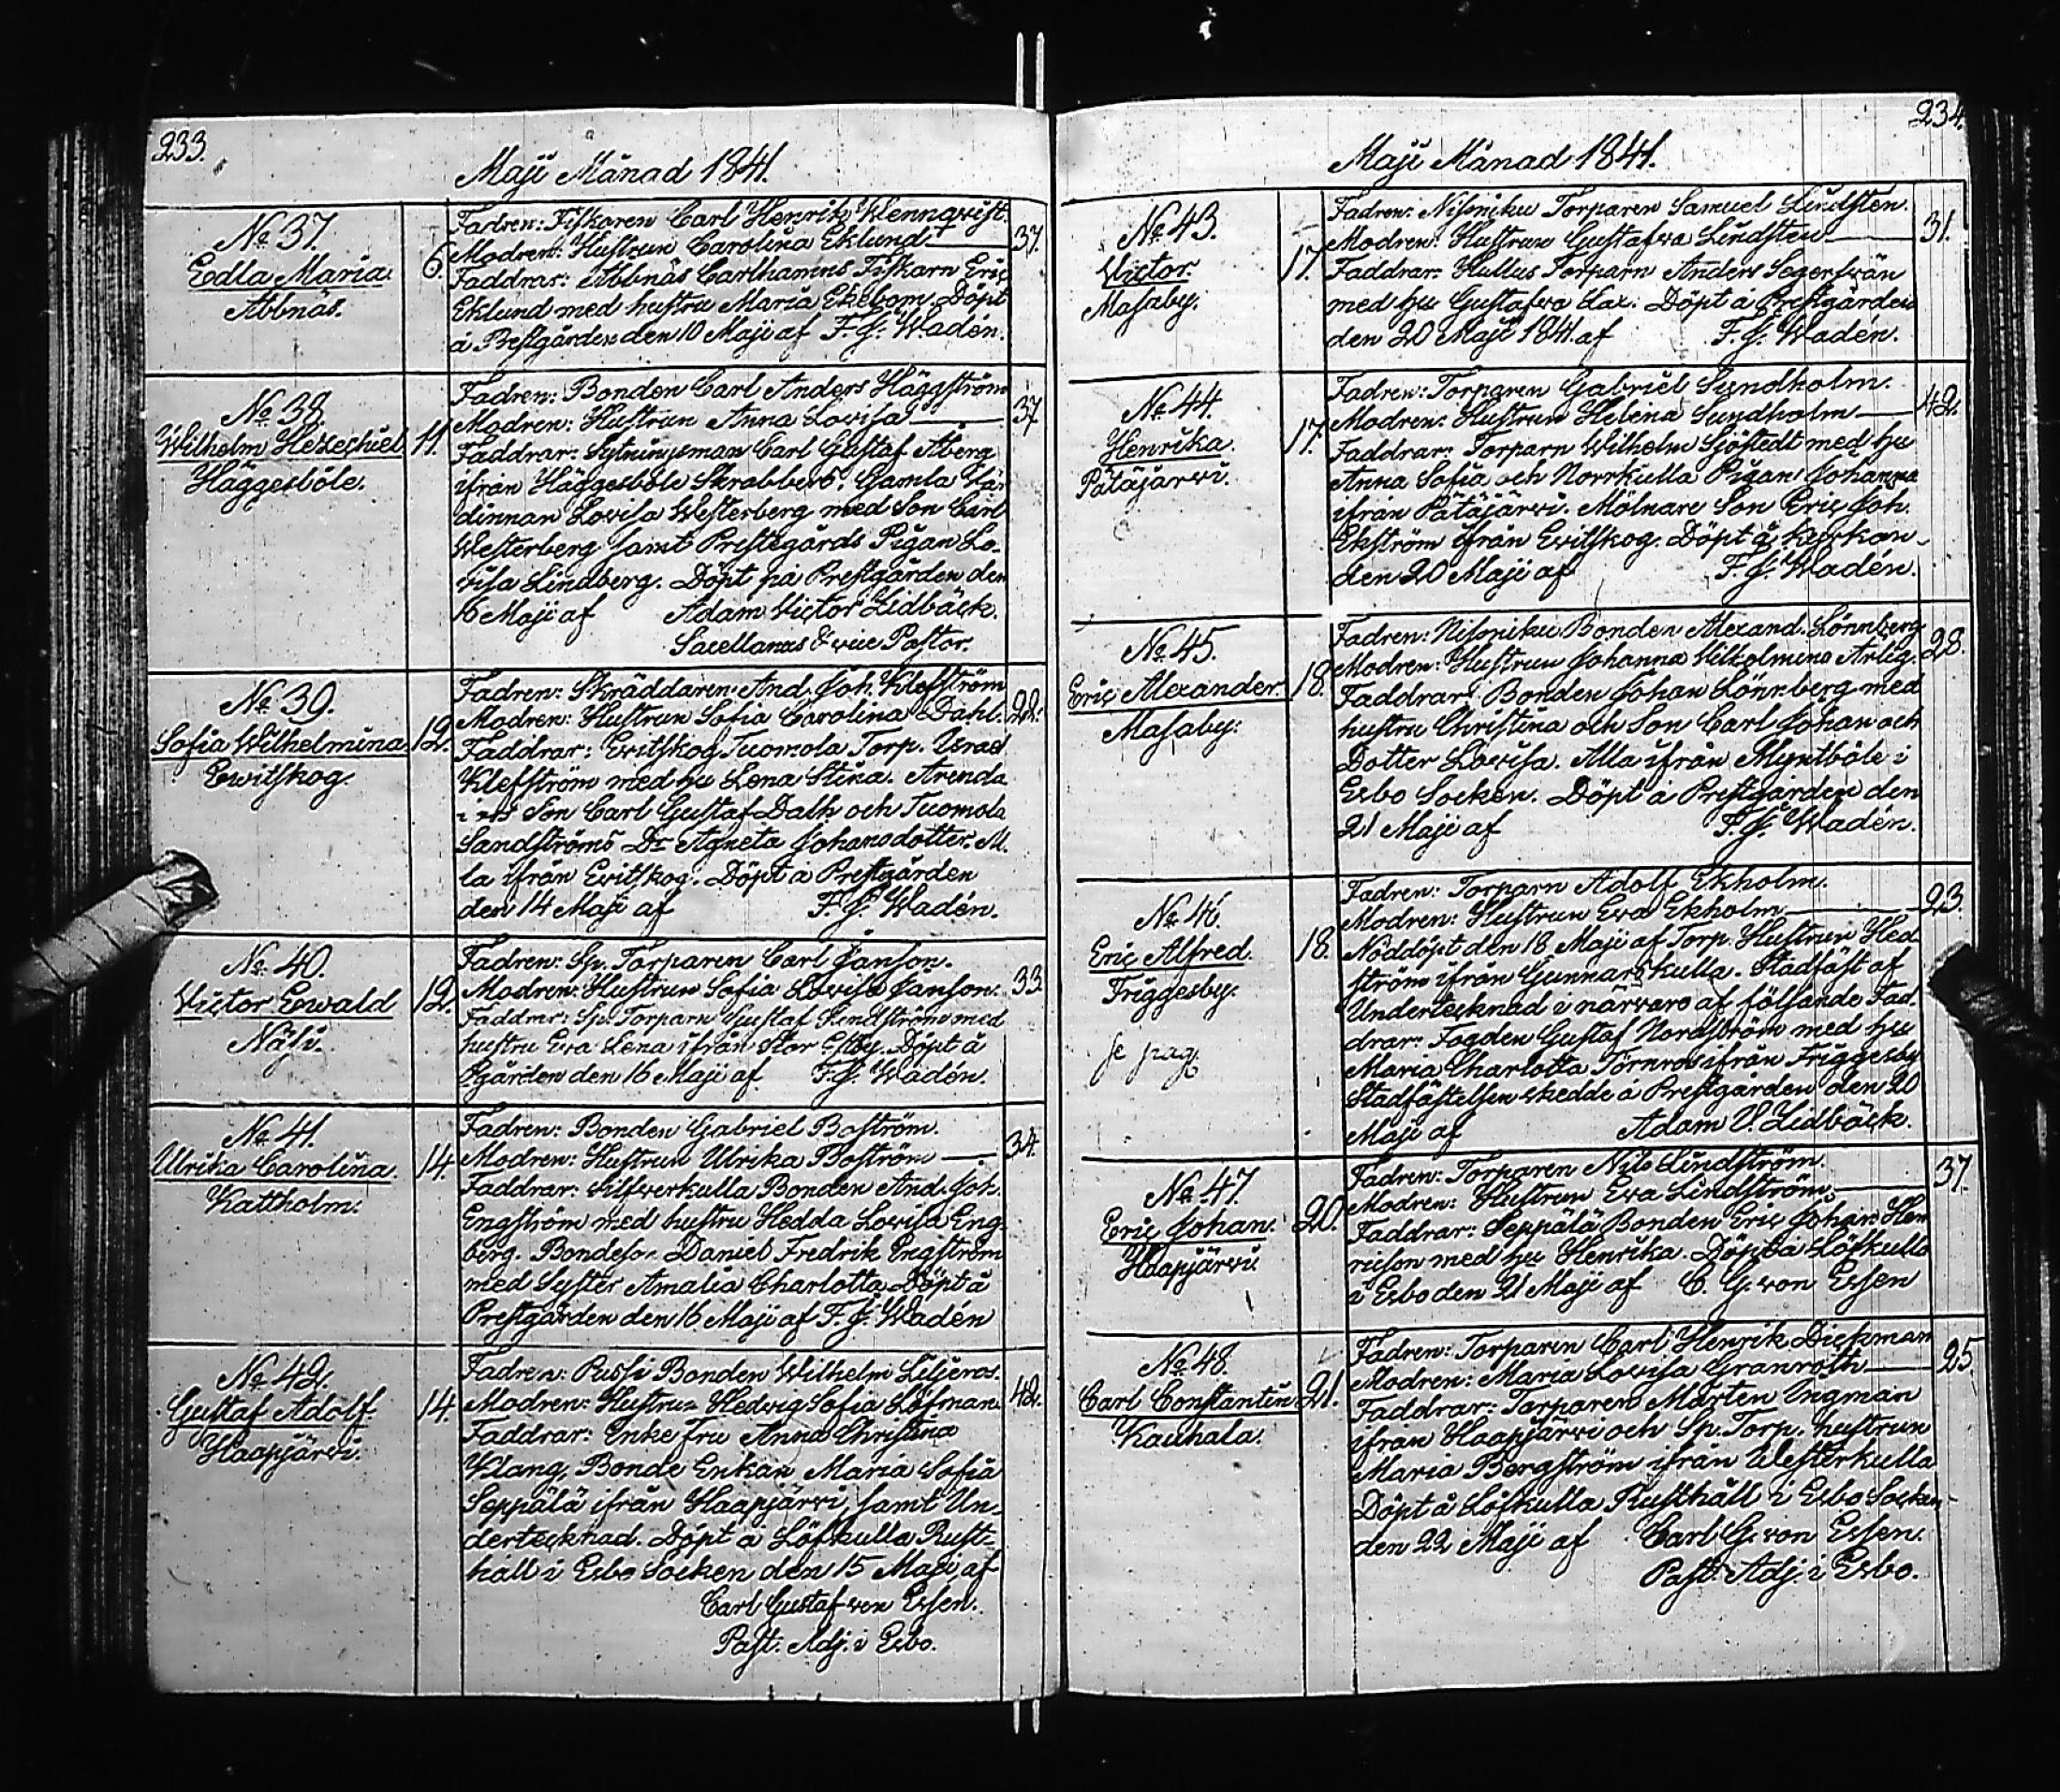 233.
Maji Månad 1841.
No 37.
Edla Maria
Abbnäs.
6.
Fadren: Fiskaren Carl Henrik Wennqvist.
Modren: Hustrun Carolina Eklund.
37.
Faddrar: Abbnäs Carlhamns Fiskarn Eric
Eklund med hustru Maria Ekebom. Döpt
å Prestgården den 10 Maji af F. J. Wadén.
No 38.
Wilhelm Hesechiel
Häggesböle.
11.
Fadren: Bonden Carl Anders Häggström
Modren: Hustrun Anna Lovisa
37
Faddrar: Sytningsman Carl Gustaf Åberg
ifrån Häggesböle Skrabbers. Gamla Vär-
dinnan Lovisa Westerberg med Son Carl
Westerberg samt Prestegårds Pigan Lo-
visa Lindberg. Döpt på Prestgården den
16 Maji af Adam Victor Lidbäck.
Sacellanus & vice Pastor.
No 39.
Sofia Wilhelmina
Evitskog.
12.
Fadren: Skräddaren And. Joh. Klefström
Modren: Hustrun Sofia Carolina Dahl.
22.
Faddrar: Evitskog Tuomola Torp. Israel
Klefström med hu Lena Stina. Arenda
Son Carl Gustaf Dahl och Tuomola
Sandströms Dr Agneta Johansdotter. Al-
la ifrån Evitskog. Döpt å Prestgården
den 14 Maji af F. J. Wadén.
No 40.
Victor Ewald
Näsu.
12.
Fadren: Sp. Torparen Carl Janson.
Modren: Hustrun Sofia Lovisa Janson.
33
Faddrar: Sp. Torparn Gustaf Lindström med
hustru Eva Lena ifrån Stor Estby. Döpt å
Pgården den 16 Maji af F. J. Wadén.
No 41.
Ulrika Carolina.
Kattholm.
14.
Fadren: Bonden Gabriel Boström.
Modren: Hustrun Ulrika Boström
34.
Faddrar: Silfverkulla Bonden And. Joh.
Engström med hustru Hedda Lovisa Eng-
berg. Bondeso. Daniel Fredrik Engström
med Syster Amalia Charlotta. Döpt å
Prestgården den 16 Maji af F. J. Wadén
No 42.
Gustaf Adolf.
Haapjärvi.
14.
Fadren: Pussi Bonden Wilhelm Liljeros.
Modren: Hustrun Hedvig Sofia Löfman.
42.
Faddrar: Enke fru Anna Christina
Klang, Bonde Enkan Maria Sofia
Seppälä ifrån Haapjärvi samt Un-
dertecknad. Döpt å Löfkulla Rust-
håll i Esbo Socken den 15 Maji af
Carl Gustaf von Essen.
Past. Adj. i Esbo.
234.
Maji Månad 1841.
No 43.
Victor.
Masaby.
17.
Fadren: Nissniku Torparen Samuel Lindsten.
Modren: Hustrun Gustafva Lindsten
31.
Faddrar: Kullus Torparn Anders Segersvän
med hu Gustafva Döpt å Prestgården
den 20 Maji 1841. af F. J. Wadén.
No 44.
Henrika.
Pätäjärvi.
17.
Fadren: Torparen Gabriel Sundholm.
Modren: Hustrun Helena Sundholm
42.
Faddrar: Torparn Wilhelm Sjöstedt med hu
Anna Sofia och Norrkulla Pigan Johanna
ifrån Pätäjärvi. Mölnare Son Eric Joh.
Ekström ifrån Evitskog. Döpt å kyrkan
den 20 Maji af F. J. Wadén.
No 45.
Eric Alexander.
Masaby.
18.
Fadren: Nissniku Bonden Alexand. Lönnberg
Modren: Hustrun Johanna Wilhelmina Arlig.
28.
Faddrar: Bonden Johan Lönnberg med
hustru Christina och Son Carl Johan och
Dotter Lovisa. Alla ifrån Myntböle i
Esbo Socken. Döpt å Prestgården den
21 Maji af F. J. Wadén.
No 46.
Eric Alfred.
Friggesby.
se pag.
18.
Fadren: Torparn Adolf Ekholm.
Modren: Hustrun Eva Ekholm
23.
Nöddöpt den 18 Maji af Torp. Hustrun Hed-
ström ifrån Gunnarskulla. Stadfäst af
Undertecknad i närvaro af följande Fad-
drar: Fogden Gustaf Nordström med hu
Maria Charlotta Törnros ifrån Friggesby
Stadfästelsen skedde å Prestgården den 20
Maji af Adam V. Lidbäck.
No 47.
Eric Johan.
Haapjärvi
20.
Fadren: Torparen Nils Lindström.
Modren: Hustrun Eva Lindström.
37.
Faddrar: Seppälä Bonden Eric Johan Hen
ricson med hu Henrika. Döpt å Löfkulla
i Esbo den 21 Maji af C. G. von Essen
No 48.
Carl Constantin
Kauhala.
21.
Fadren: Torparen Carl Henrik Dickman
Modren: Maria Lovisa Granroth
25.
Faddrar: Torparen Mårten Ingman
ifrån Haapjärvi och Sp. Torp. hustrun
Maria Bergström ifrån Westerkulla
Döpt å Löfkulla Rusthåll i Esbo Socken
den 22 Maji af Carl G. von Essen.
Past. Adj. i Esbo.